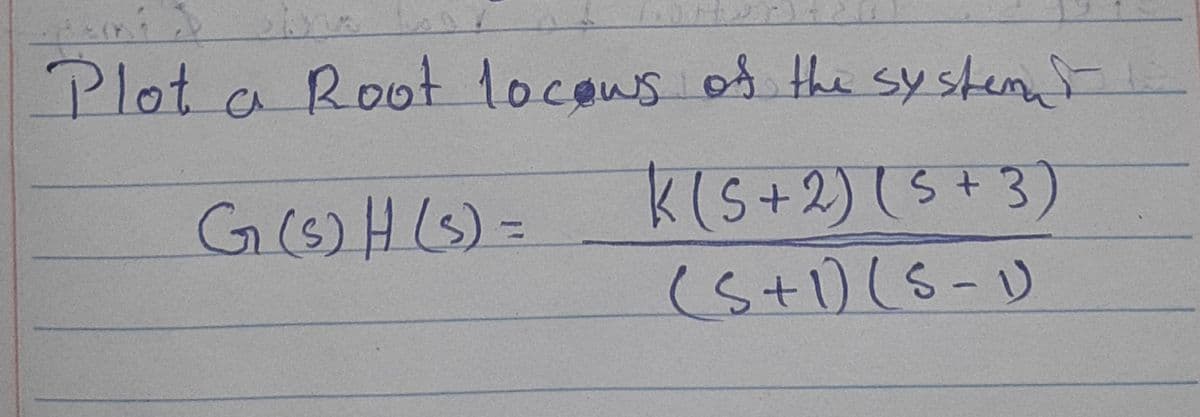 Plot a Root locus of the system
G(s) H(s) = K(s+2)(s+3)
(s+1)(s-1)